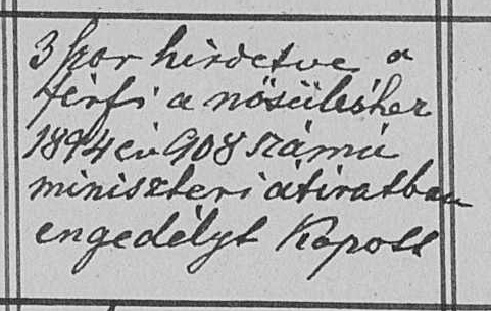 3 szor hirdetve a
férfi a nősüléshez
1894 év 908 számú
miniszteri átiratban
engedélyt kapott